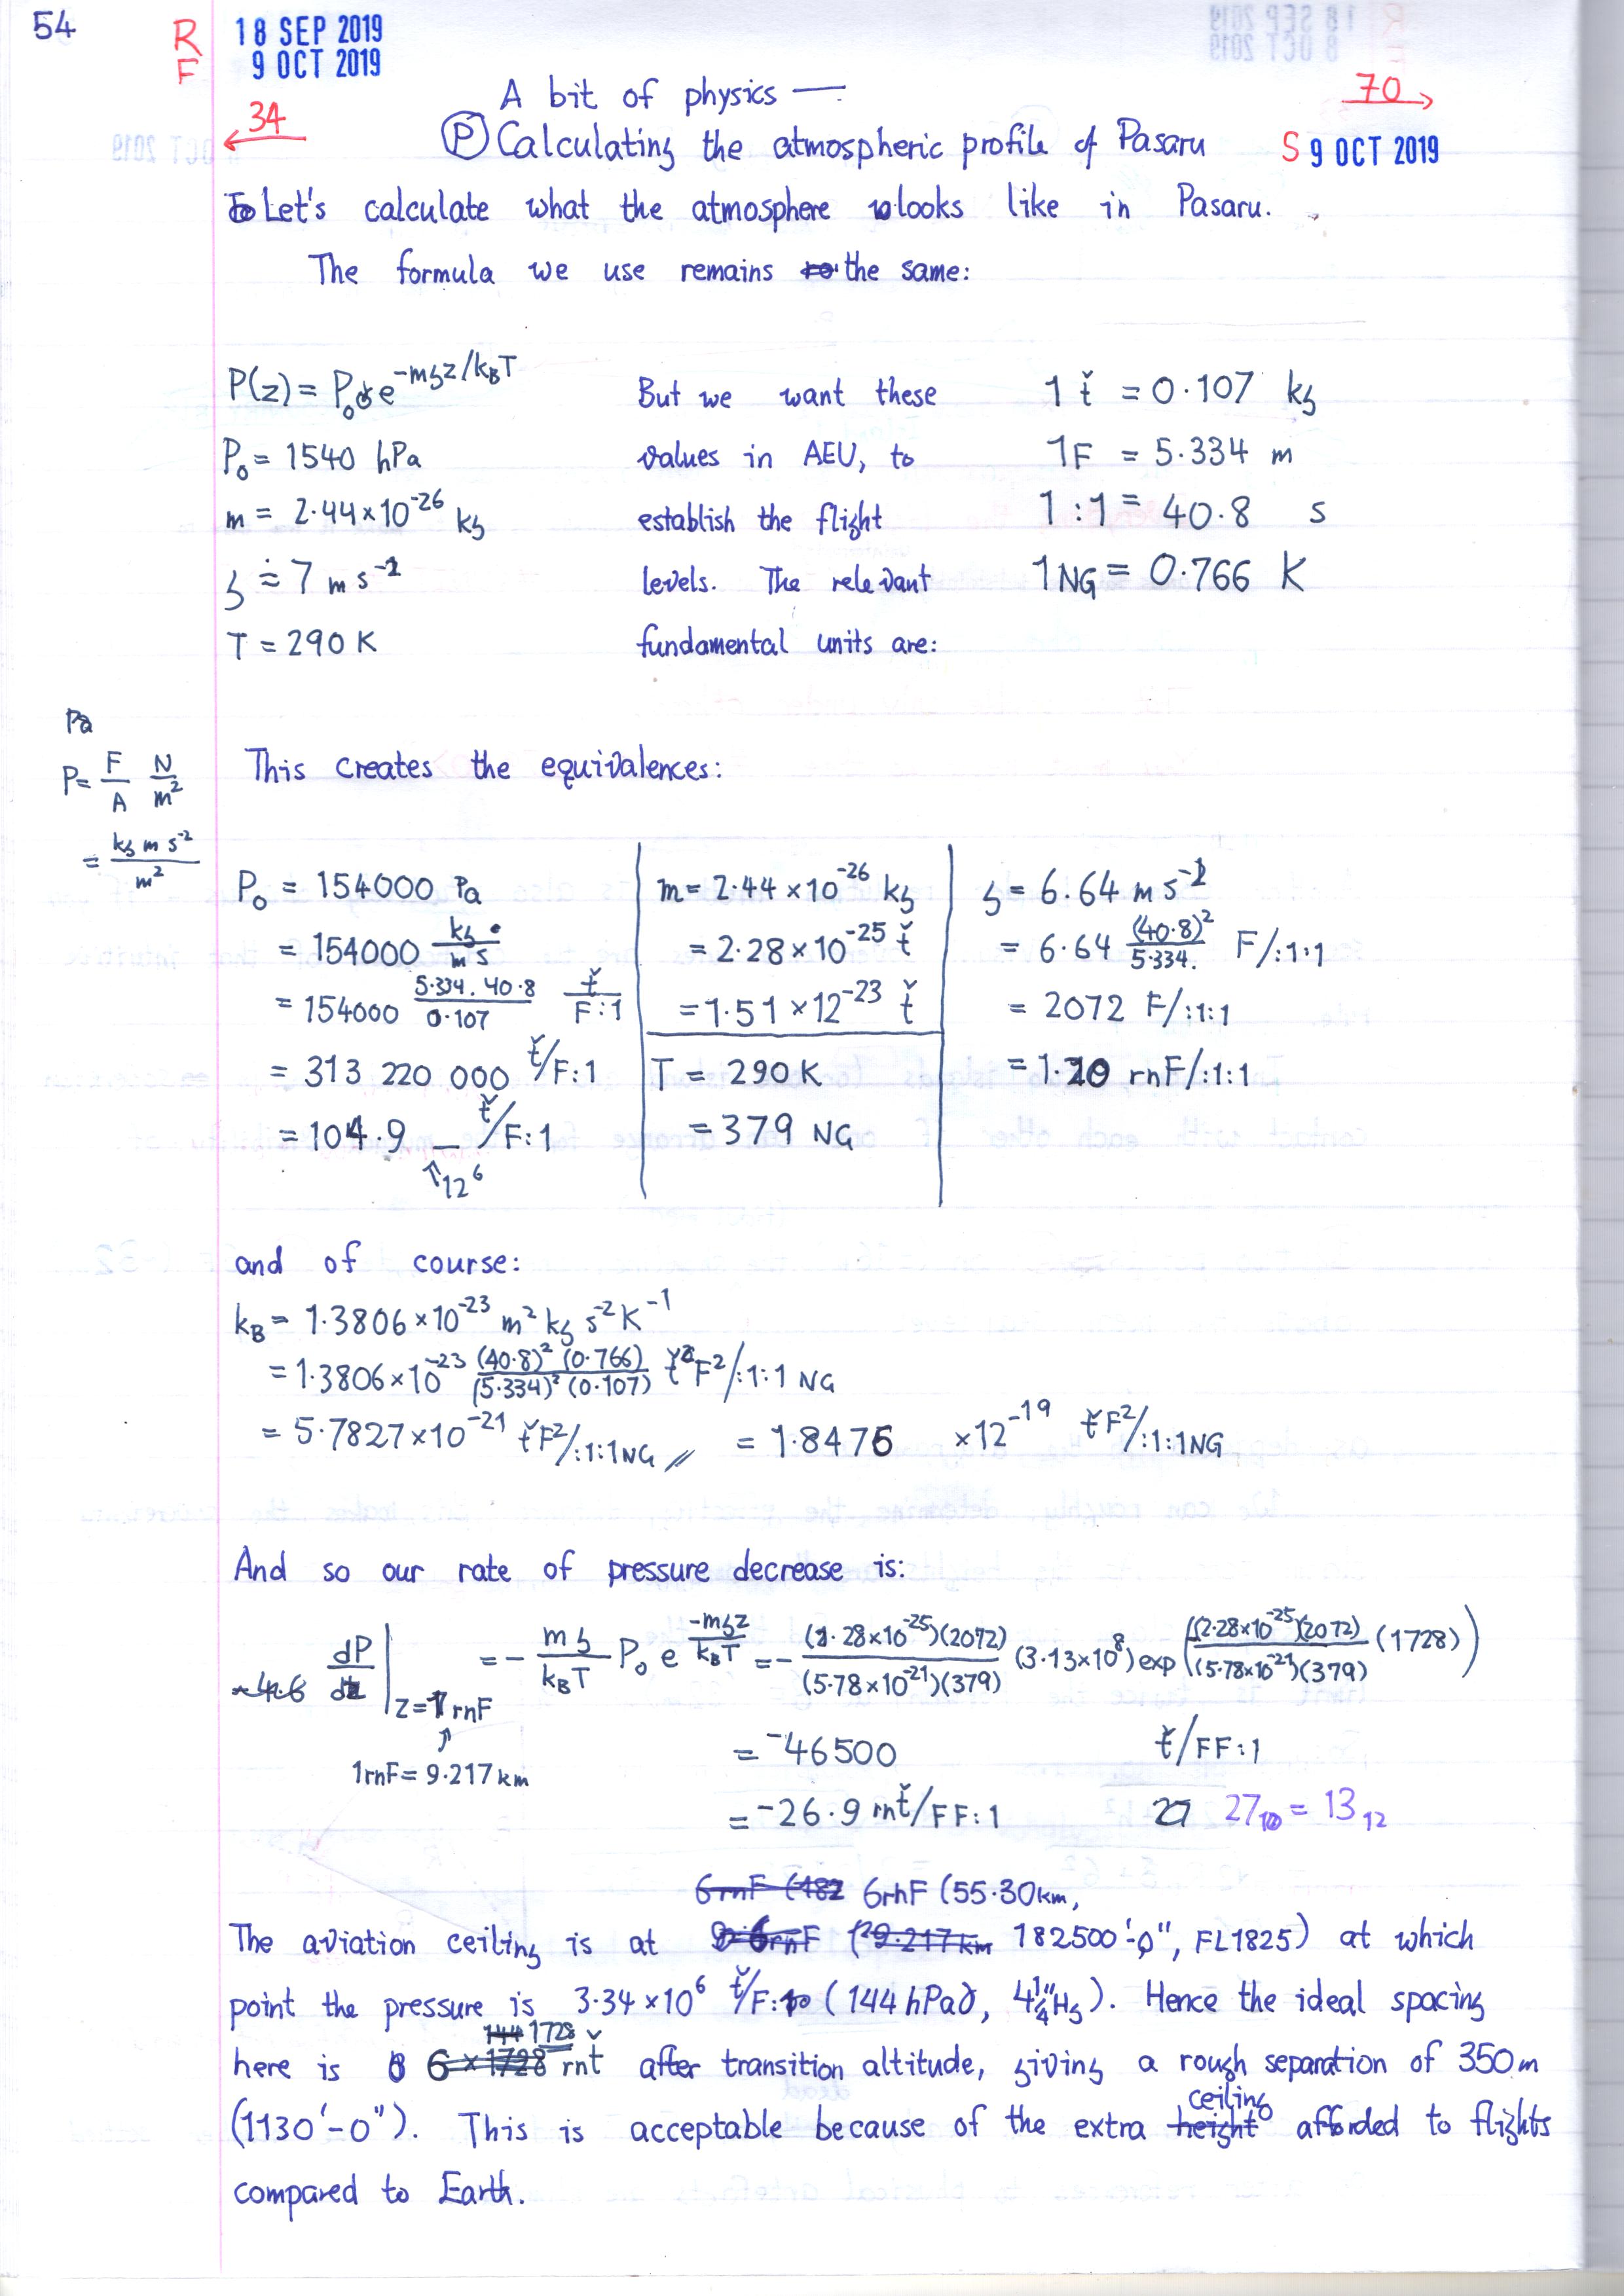 54
R 18 SEP 2019
F 9 OCT 2019
A bit of physics —
← 34
70 →
Ⓟ Calculating the atmospheric profile of Pasaru
S 9 OCT 2019
Let's calculate what the atmosphere looks like in Pasaru.
The formula we use remains the same:
P(z) = P₀ e^(-mgz/k_BT)
P₀ = 1540 hPa
m = 2.44×10^-26 kg
g ≐ 7 m s^-2
T = 290 K
But we want these
values in AEU, to
establish the flight
levels. The relevant
fundamental units are:
1 ť = 0.107 kg
1F = 5.334 m
1 :1 = 40.8 s
1NG = 0.766 K
Pa
P = F/A N/m²
= kg m s^-2 / m²
This creates the equivalences:
P₀ = 154000 Pa
= 154000 kg / m s
= 154000 (5.334 . 40.8 / 0.107) ť/F:1
= 313 220 000 ť/F:1
= 104.9 _ ť/F:1
↑12^6
m = 2.44 ×10^-26 kg
= 2.28 ×10^-25 ť
= 1.51 ×12^-23 ť
T = 290 K
= 379 NG
g = 6.64 m s^-2
= 6.64 (40.8)²/5.334. F/:1:1
= 2072 F/:1:1
= 1.20 rnF/:1:1
and of course:
k_B = 1.3806×10^-23 m² kg s^-2 K^-1
= 1.3806×10^-23 (40.8)² (0.766) / (5.334)² (0.107) ťF²/:1:1 NG
= 5.7827×10^-21 ťF²/:1:1NG // = 1.8476 ×12^-19 ťF²/:1:1NG
And so our rate of pressure decrease is:
-4.6 dP/dz | z=1rnF = - (mg/k_BT) P₀ e^(-mgz/k_BT) = - (2.28×10^-25)(2072) / (5.78×10^-21)(379) (3.13×10^8) exp ((2.28×10^-25)(2072) / (5.78×10^-21)(379) (1728))
↑
1rnF = 9.217 km
= -46500 ť/FF:1
= -26.9 rnť/FF:1 27 27₁₀ = 13₁₂
6rnF (182 6rnF (55.30km,
The aviation ceiling is at (9.217km 182500'-0", FL1825) at which
point the pressure is 3.34×10^6 ť/F:1 (144 hPa, 4¼"Hg). Hence the ideal spacing
144 1728
here is 6 × 1728 rnť after transition altitude, giving a rough separation of 350m
ceiling
(1130'-0"). This is acceptable because of the extra height afforded to flights
compared to Earth.